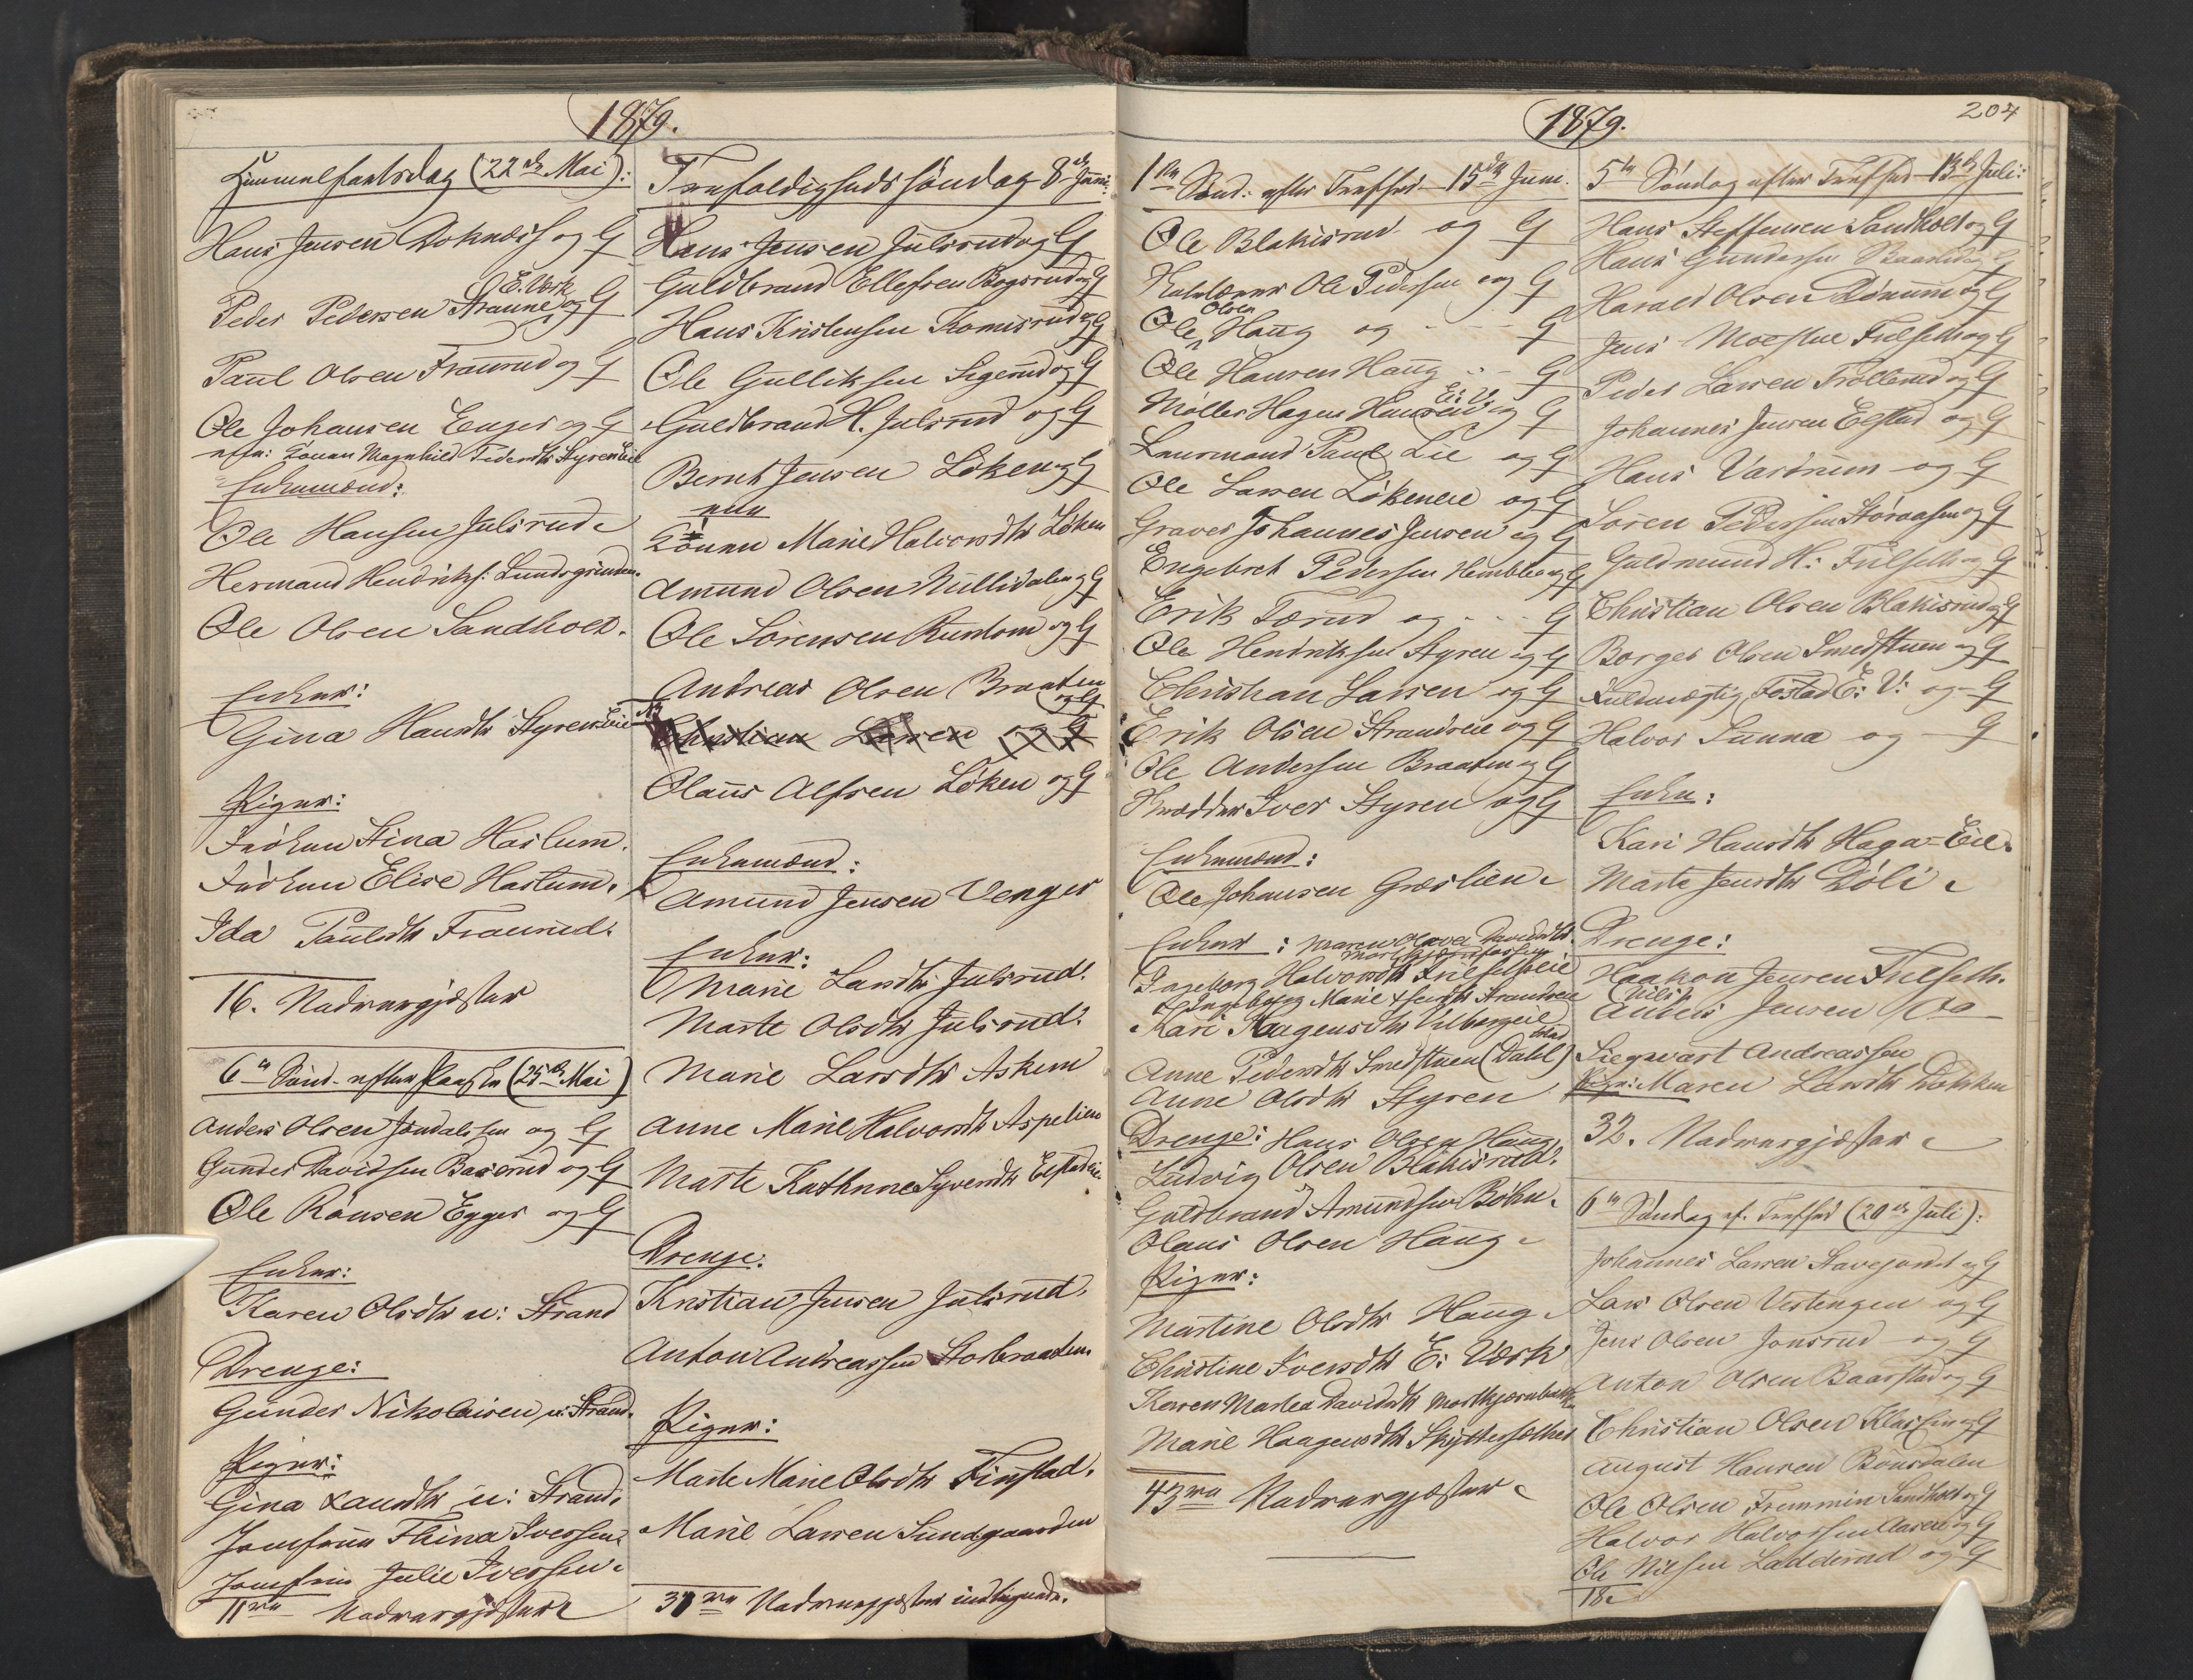 1879.
Himmelfartsdag (22de Mai):
Hans Jensen Doknæss og G
E. Værk
Peder Pedersen Straune og G
Paul Olsen Fraurud og G
Ole Johansen Enger og G
Konen Magnhild Pedersdtr Styreneie
Enkemænd:
Ole Hansen Julsrud
Hermand Hendriks: Lundsgrinden.
Ole Olsen Sandholt.
Enker:
Gina Hansdtr Styrenseie
Piger:
Frøken Stina Haslum.
Frøken Elise Haslum.
Ida Paulsdtr Fraurud.
16. Nadvergjæster
6te Sønd. efter Paaske (25de Mai)
Anders Olsen Jondalssen og G
Gunder Davidsen Baserud og G
Ole Rønsen Egger og G
Enker:
Karen Olsdtr n: Strand
Drenge:
Gunder Nikolaisen n: Strand.
Piger:
Gina Larsdtr n: Strand.
Jomfru Thina Iversen.
Jomfru Julie Iversen.
11 Nadvergjæster
Trefoldighedssøndag 8de Juni:
Hans Jensen Julsrud og G
Guldbrand Ellefsen Bogsrud og G
Hans Kristensen Komisrud og G
Ole Gulliksen Sigerud og G
Guldbrand H. Julsrud og G
Bernt Jensen Løken og G
Konen Marie Halvorsdtr Løken
Amund Olsen Nullidalen og G
Ole Sørensen Rustom og G
Andreas Olsen Braaten
og G
Christian Larsen og G
Olaus Alfsen Løken og G
Enkemænd:
Amund Jensen Venger
Enker:
Marie Larsdtr Julsrud.
Marte Olsdtr Julsrud.
Marie Larsdtr Askem
Anne Marie Halvorsdtr Aspelien
Marte Kathrine Syversdtr Eefstadeie.
Drenge:
Kristian Jensen Julsrud.
Anton Andreassen Storbraaten.
Piger:
Marte Marie Olsdtr Finstad.
Marie Larsen Sundgaarden
Nadvergjæster
1879.
204
1ste Sønd: efter Trefhed 15de Juni.
Ole Blakisrud og G
Ole Pedersen og G
Olsen
Ole Haug og - - - G
Ole Hansen Haug - - G
Ei. V.
Møller Hagen og G
Lensmand Paul Lie og G
Ole Larsen Løkeneie og G
Graver Johannes Jensen og G
Engebret Pedersen Hemble og G
Erik Tærud og - - - G
Ole Hendriksen Styren og G
Christian Larsen og G
Erik Olsen Strandeie og G
Ole Andersen Braaten og G
Skrædder Iver Styren og G
Enkemænd:
Ole Johansen Græslien
Enker: Maren Olava Davidsdtr.
Ingeborg Halvorsdtr Fulsethseie
Ingeborg Marie Strandeie
Kari Haagensdtr Vilbergeie
Anne Pedersdtr Smedstuen (Dahl)
Anne Olsdtr Styren
Drenge: Hans Olsen Haug.
Ludvig Olsen Blakisrud.
Guldbrand Amundsen Bøhn.
Olaus Olsen Haug
Piger:
Martine Olsdtr Haug
Christine Iversdtr E: Værk
Karen Martea Davidsdtr Mortkjærnbakken
Marie Haagensdtr Skyttersæther
43 Nadvergjæster
5te Søndag efter Trefhed 13de Juli:
Hans Steffensen Sandholt og G
Hans Gundersen Baarlid og G
Harald Olsen Dønnum og G
Jens Moestue Fulseth og G
Peder Larsen Trøllerud og G
Johannes Jensen Eefstad og G
Hans Varbrum og G
Søren Pedersen Støraasen og G
Guldmund H: Fulseth og G
Christian Olsen Blakisrud og G
Borger Olsen Smedstuen og G
Fuldmægtig Tostad E: V: og G
Halvor Sunna og - G
Enker:
Kari Hansdtr Haga-Eie.
Marte Jensdtr Døli
Drenge:
Haakon Jensen Fulseth.
Nils
Anders Jensen do
Siegwart Andreassen
Piger: Maren Larsdtr Dokken
32. Nadvergjæster
6te Søndag ef. Trefhed (20de Juli):
Johannes Larsen Stavejordet og G
Lars Olsen Vestengen og G
Jens Olsen Jonsrud og G
Anton Olsen Baarstad og G
Christian Olsen Klaseie og G
August Hansen Bonsdalen
Ole Olsen Fremmin Sandholt og G
Halvor Halvorsen Aaseie og G
Ole Nilsen Ladderud og G
18